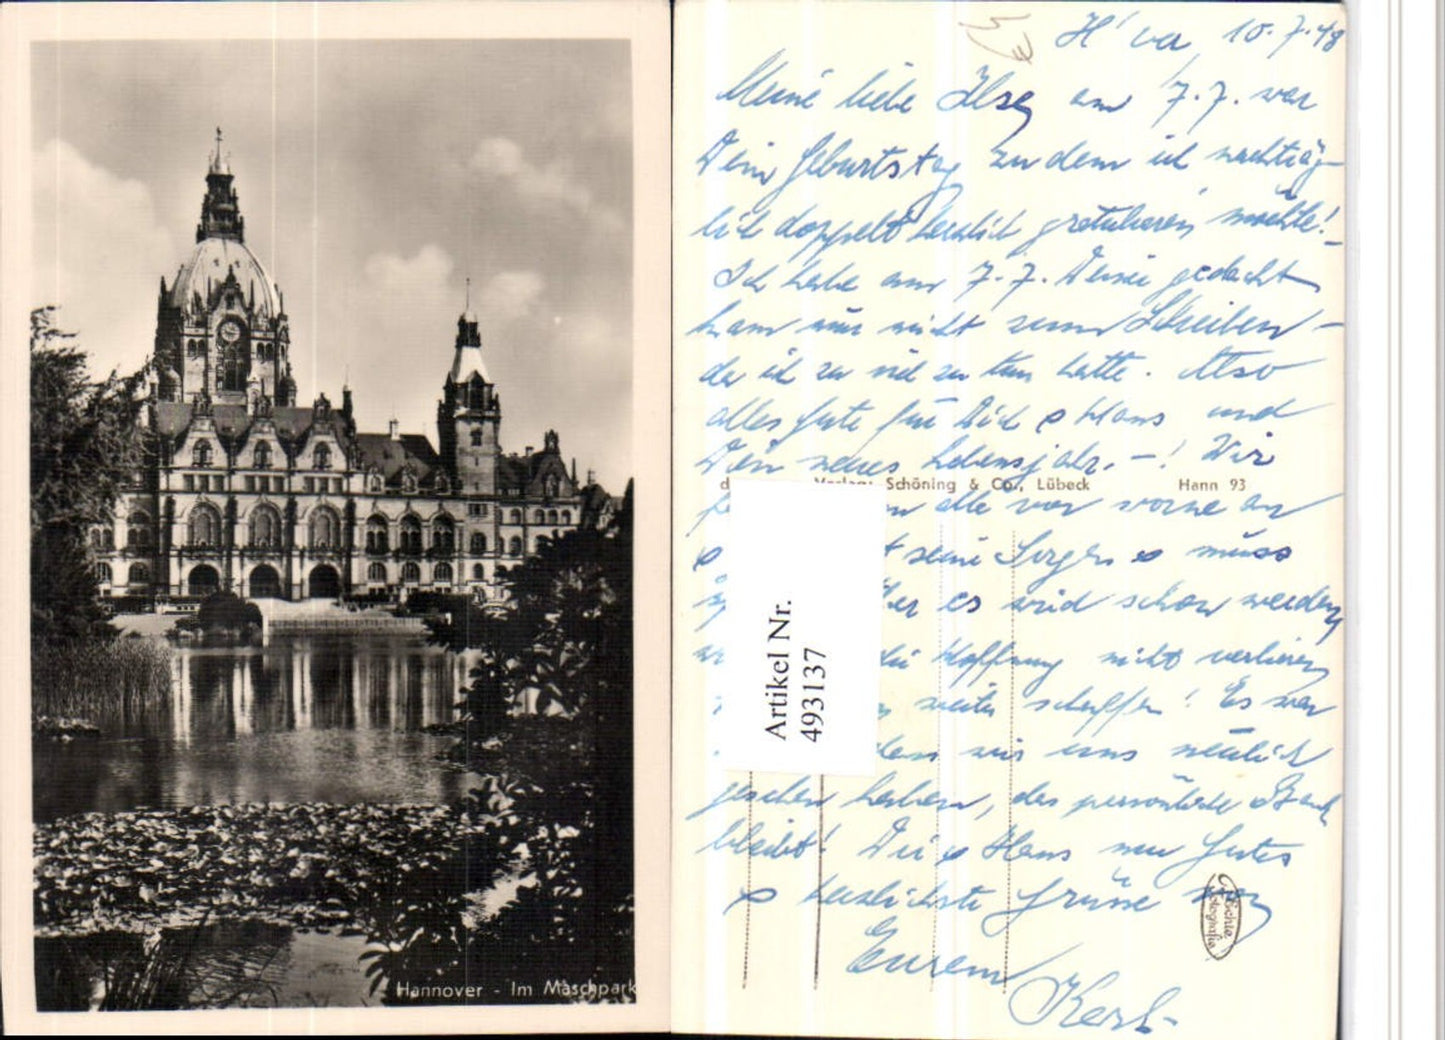 Hannover - Im Maschpark
H'ver, 10.7.48
Meine liebe Ilse, am 7.7. war
Dein Geburtstag zu dem ich nachträg-
lich doppelt herzlich gratulieren möchte!
Ich habe am 7.7. Deiner gedacht
kam nur nicht zum Schreiben -
da ich zu viel zu tun hatte. Also
alles Gute für Dich & Hans und
Dein neues Lebensjahr. -! Wir
Verlag: Schöning & Co., Lübeck
Hann 93
alle von vorne an
seine Sorgen & muss
es wird schon werden,
die Hoffnung nicht verlieren
weiter schaffen! Es war
dass wir uns neulich
gesehen haben, das persönliche Band
bleibt! Dir & Hans nur Gutes
& herzlichste Grüsse von
Eurem
Karl-
Artikel Nr.
493137
Echte
Fotografie